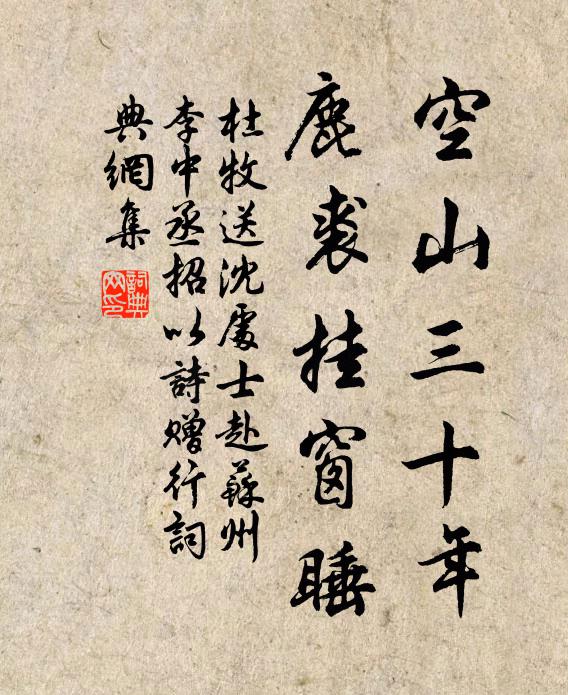 空山三十年
鹿裘挂窗睡
杜牧送沈處士赴蘇州
李中丞招以詩贈行詞
典網集
詞典
网印